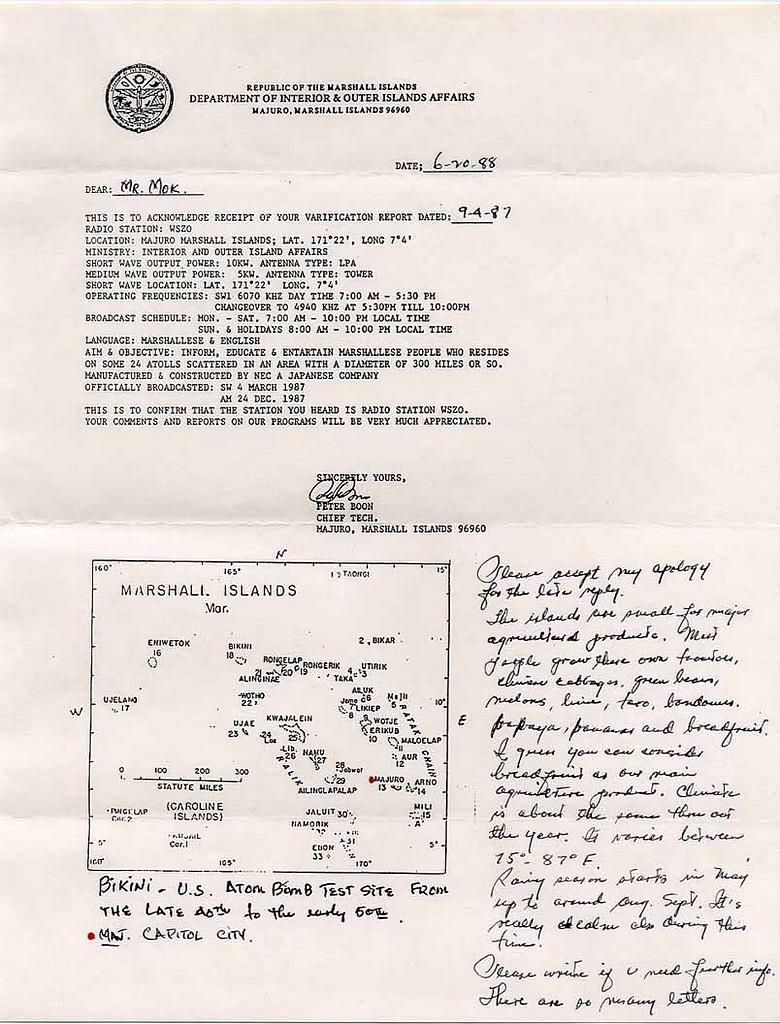 REPUBLIC OF THE MARSHALL ISLANDS
DEPARTMENT OF INTERIOR & OUTER ISLANDS AFFAIRS
MAJURO, MARSHALL ISLANDS 96960
DATE; 6-20-88
DEAR: MR. MOK.
THIS IS TO ACKNOWLEDGE RECEIPT OF YOUR VARIFICATION REPORT DATED: 9-4-87
RADIO STATION: WSZO
LOCATION: MAJURO MARSHALL ISLANDS; LAT. 171°22', LONG 7°4'
MINISTRY: INTERIOR AND OUTER ISLAND AFFAIRS
SHORT WAVE OUTPUT POWER: 10KW. ANTENNA TYPE: LPA
MEDIUM WAVE OUTPUT POWER: 5KW. ANTENNA TYPE: TOWER
SHORT WAVE LOCATION: LAT. 171°22' LONG. 7°4'
OPERATING FREQUENCIES: SW1 6070 KHZ DAY TIME 7:00 AM - 5:30 PM
CHANGEOVER TO 4940 KHZ AT 5:30PM TILL 10:00PM
BROADCAST SCHEDULE: MON. - SAT. 7:00 AM - 10:00 PM LOCAL TIME
SUN. & HOLIDAYS 8:00 AM - 10:00 PM LOCAL TIME
LANGUAGE: MARSHALLESE & ENGLISH
AIM & OBJECTIVE: INFORM, EDUCATE & ENTARTAIN MARSHALLESE PEOPLE WHO RESIDES
ON SOME 24 ATOLLS SCATTERED IN AN AREA WITH A DIAMETER OF 300 MILES OR SO.
MANUFACTURED & CONSTRUCTED BY NEC A JAPANESE COMPANY
OFFICIALLY BROADCASTED: SW 4 MARCH 1987
AM 24 DEC. 1987
THIS IS TO CONFIRM THAT THE STATION YOU HEARD IS RADIO STATION WSZO.
YOUR COMMENTS AND REPORTS ON OUR PROGRAMS WILL BE VERY MUCH APPRECIATED.
SINCERELY YOURS,
PETER BOON
CHIEF TECH.
MAJURO, MARSHALL ISLANDS 96960
N
160° 165° 15°
MARSHALL ISLANDS
Mar.
1 TAONGI
ENIWETOK
16
BIKINI
18
2 BIKAR
RONGELAP
20 19 RONGERIK
21
AILINGINAE
UTIRIK
4 3
TAKA
UJELANG
17
WOTHO
22
AILUK
6
Mejit
5
Jemo
7 LIKIEP
8
10°
W
E
UJAE
23
KWAJALEIN
24
Lae
25
9 WOTJE
ERIKUB
10
RATAK CHAIN
MALOELAP
11
AUR
12
Lib
26
NAMU
27
RALIK
28
Jabwot
29
AILINGLAPALAP
MAJURO
13
ARNO
14
0 100 200 300
STATUTE MILES
(CAROLINE
ISLANDS)
PINGELAP
Car. 2
Car. 1
JALUIT 30
MILI
15
NAMORIK
32
31
EBON
33
5° 5°
160° 165° 170°
BIKINI - U.S. ATOM BOMB TEST SITE FROM
THE LATE 40th to the early 50th.
MAJ. CAPITOL CITY.
Please accept my apology
for the late reply.
The islands are small for major
agricultural products. Most
people grow there own tomatoes,
chinese cabbages, green beans,
melons, lime, taro, bandanus,
papaya, bananas and breadfruit.
I guess you can consider
breadfruit as our main
agriculture product. Climate
is about the same thru out
the year. It varies between
75°- 87° F.
Rainy season starts in May
up to around Aug. Sept. It's
really calm also during this
time.
Please write if u need further info.
There are so many letters.